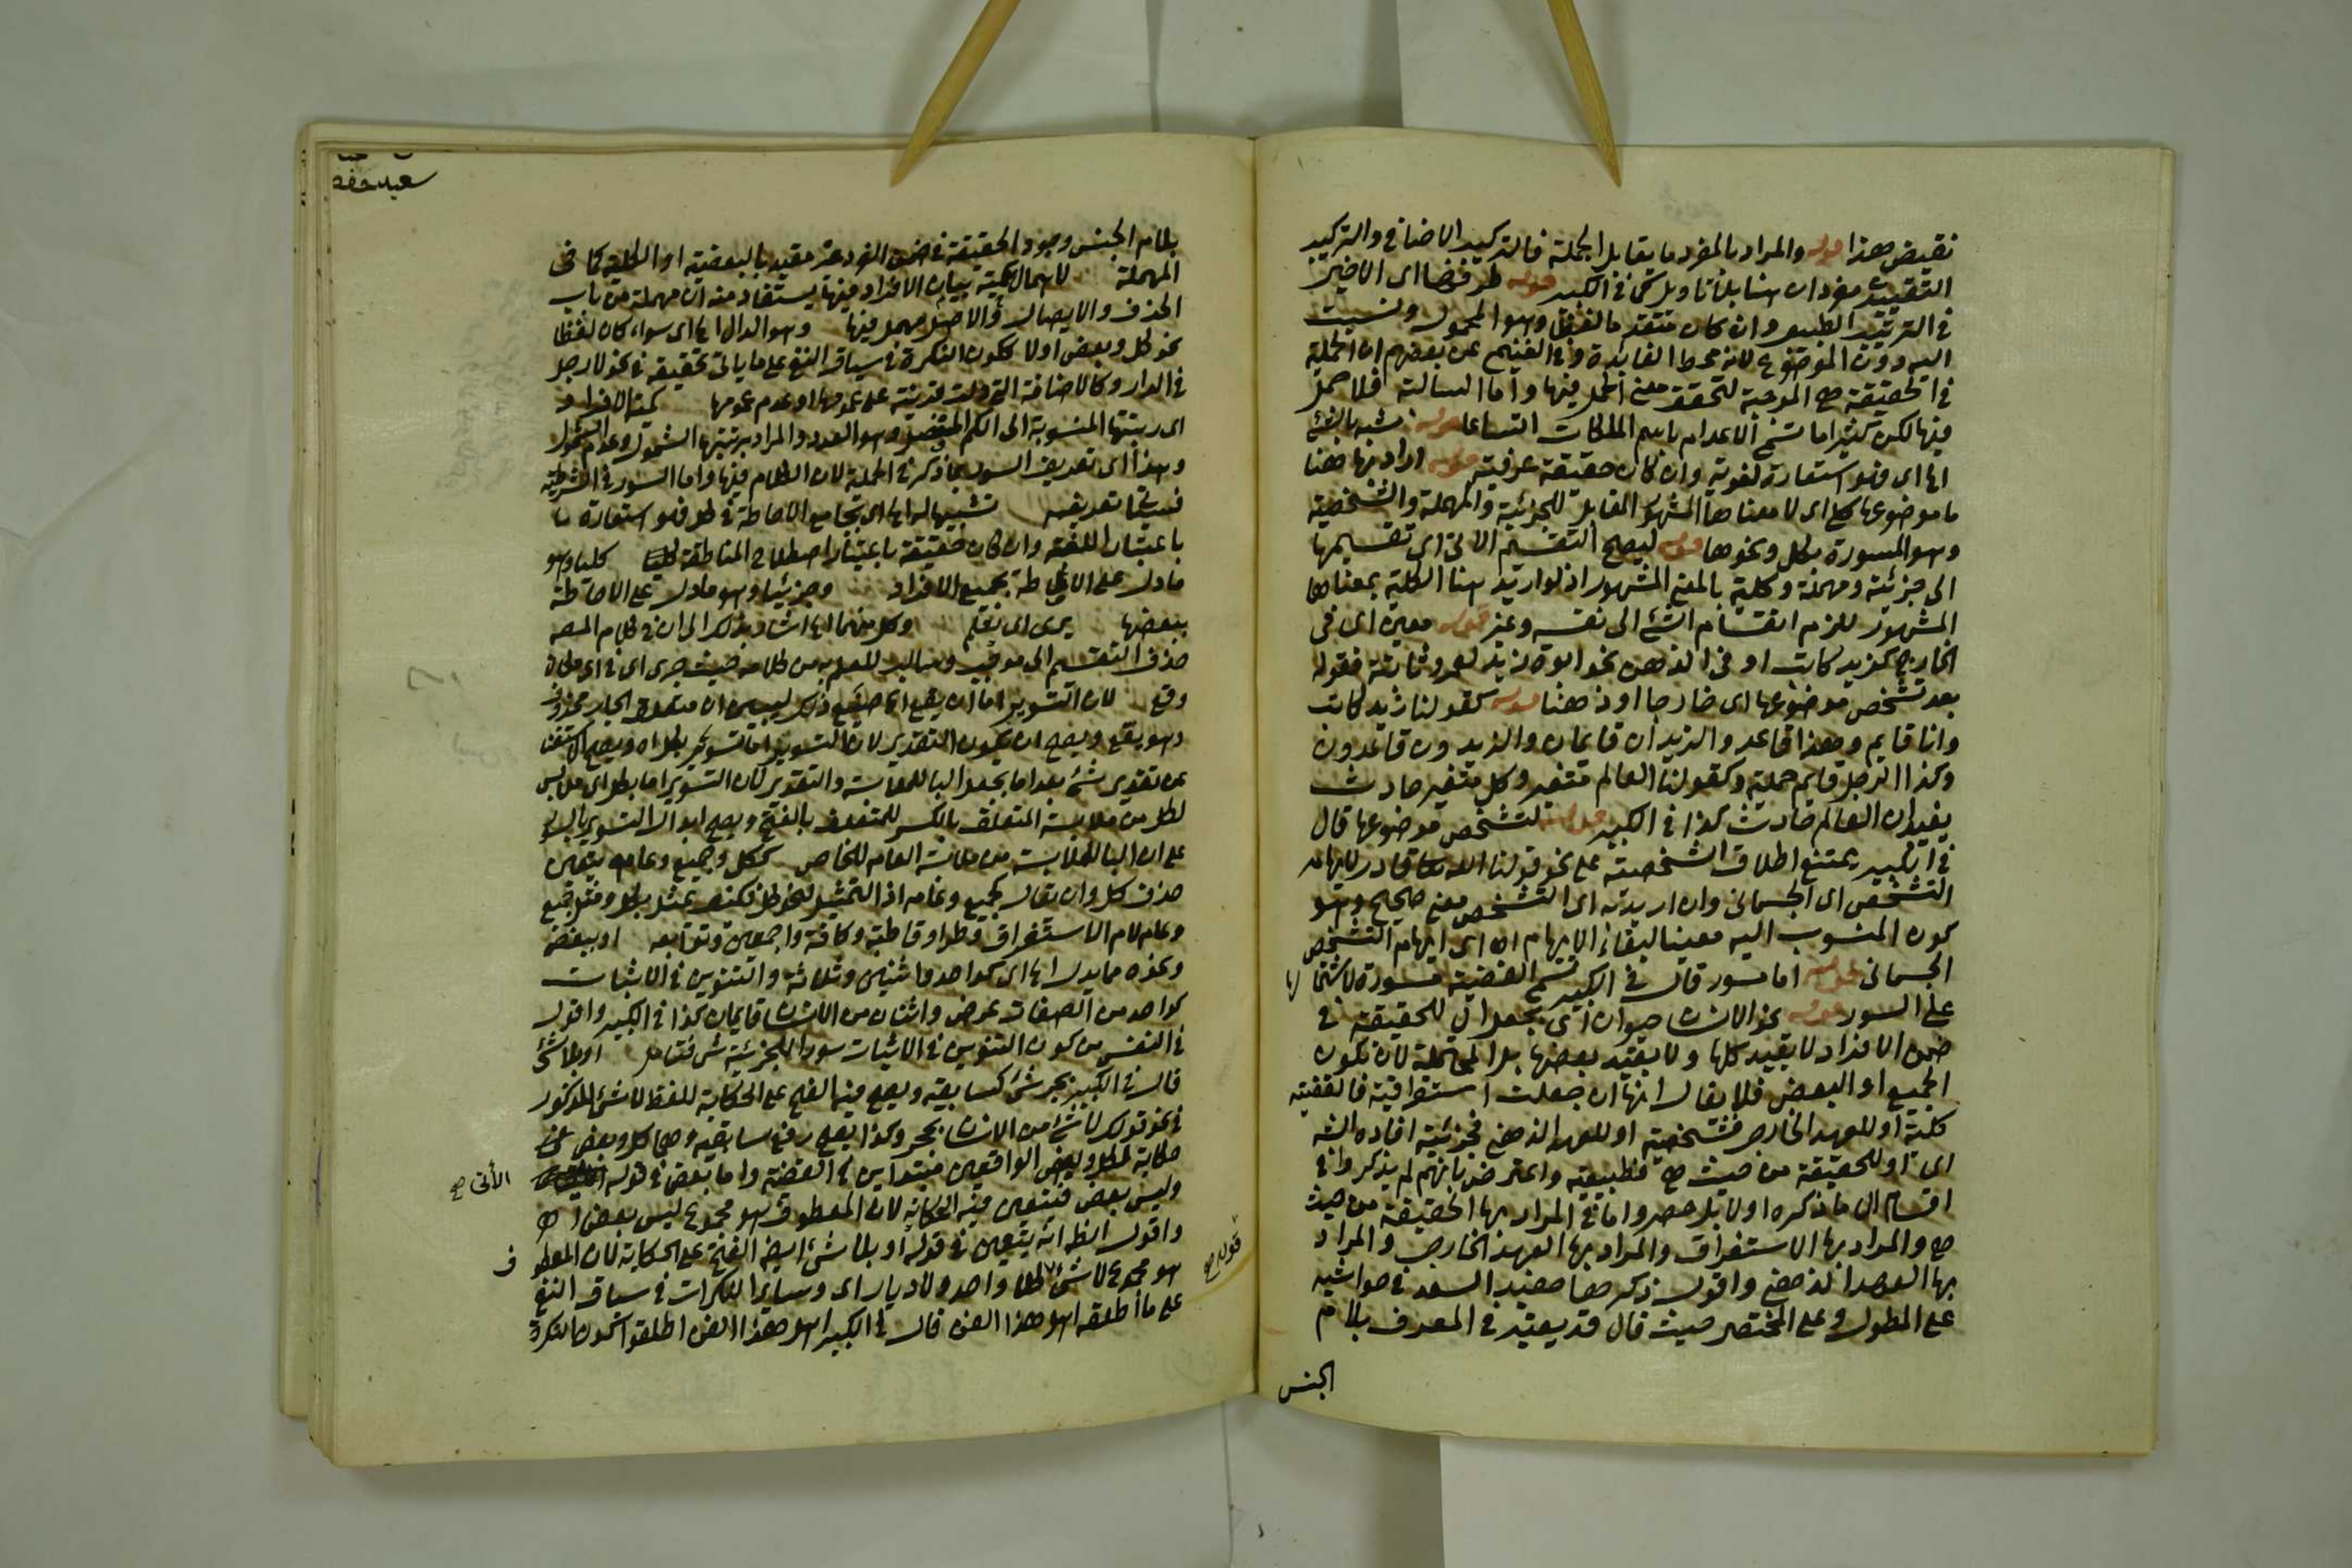 نقيض هذا قوله والمراد بالمفرد ما يقابل الجملة فالتركيب الاضافي والتركيب
التقييدي مفردان هنا بلا تاويل كما في الكبير قوله طرفيها اى الاخير
في الترتيب الطبيعي وان كان متقدما لفظا وهو المحمول ونسبت
اليه دون الموضوع لانه محط الفائدة وفي الغنيمي عن بعضهم ان الحملية
في الحقيقة هي الموجبة لتحقق معنى الحمل فيها واما السالبة فلا حمل
فيها لكن كثيرا ما تسمى الاعدام باسم الملكات اتساعا قوله شبه بالشئ
اه اى فهو استعارة لغوية وان كان حقيقة عرفية قوله اراد بها هنا
ما موضوعها كلي اى لا معناها المشهور المقابل للجزئية والمهملة والشخصية
وهو المسورة بكل ونحوها قوله ليصح التقسيم الاتى اى تقسيمها
الى جزئية ومهملة وكلية بالمعنى المشهور اذ لو اريد هنا الكلية بمعناها
المشهور للزم انقسام الشئ الى نفسه وغيره قوله معين اى في
الخارج كزيد كاتب او في الذهن نحو ابوة زيد لعمرو ثابتة فقوله
بعد تشخص موضوعها اى خارجا او ذهنا قوله كقولنا زيد كاتب
وانا قايم وهذا قاعد والزيدان قايمان والزيدون قاعدون
وكذا الرجل قايم حملية وكقولنا العالم متغير وكل متغير حادث
يفيد ان العالم حادث كذا في الكبير قوله لتشخص موضوعها قال
في الكبير يمتنع اطلاق الشخصية على نحو قولنا الله قادر لايهام
التشخص اى الجسمانى وان اريد به اى التشخص معنى صحيح وهو
كون المنسوب اليه معينا لبقاء الايهام اه اى ايهام التشخص
الجسمانى قوله اما مسور قال في الكبير تسمى القضية مسورة لاشتمالها
على السور قوله نحو الانسان حيوان اى بجعل ال للحقيقة في
ضمن الافراد لا بقيد كلها ولا بقيد بعضها بل المحتملة لان تكون
الجميع او البعض فلا يقال انها ان جعلت استغراقية فالقضية
كلية او للعهد الخارجى فشخصية او للعهد الذهنى فجزئية افاده الشه
اى او للحقيقة من حيث هي فطبيعية واعترض بانهم لم يذكروا في
اقسام ال ما ذكره اولا بل حصروها في المراد بها الحقيقة من حيث
هي والمراد بها الاستغراق والمراد بها العهد الخارجى والمراد
بها العهد الذهنى واقول ذكر هذا حفيد السعد في حواشيه
على المطول وعلى المختصر حيث قال قد يعتبر في المعرف بلام
الجنس
سعيد حفصه
بلام الجنس وجود الحقيقة في ضمن الفرد غير مقيد بالبعضية او الكلية كما في
المهملة لاهمال كمية بيان الافراد فيها يستفاد منه ان مهملة من باب
الحذف والايصال والاصل مهمل فيها وهو الدال اه اى سواء كان لفظا
نحو كل وبعض اولا ككون النكرة في سياق النفى على ما ياتى تحقيقه في نحو لا رجل
في الدار وكالاضافة التى دلت قرينة على عمومها او عدم عمومها كمية الافراد
اى رتبتها المنسوبة الى الكم المنفصل وهو العدد والمراد برتبتها الشمول وعدم الشمول
وهذا اى تعريف السور بما ذكر في الحملية لان الكلام فيها واما السور في الشرطية
فسياتى تعريفه تشبيها له اه اى بجامع الاحاطة في كل فهو استعارة
باعتبار اللغة وان كان حقيقة باعتبار اصطلاح المناطقة كليا وهو
ما دل على الاحاطة بجميع الافراد وجزئيا وهو ما دل على الاحاطة
ببعضها يرى اى يعلم وكل منهما اه اشار بذلك الى ان في كلام المصه
حذف التقسيم الى موجب وسالب للعلم به من كلامه حيث جرى اى في اى مكان
وقع لان التسوير اما ان يقع اه حقق ذلك ليبين ان متعلق الجار محذوف
وهو يقع ويصح ان يكون التقدير لان التسوير اما تسوير بكل اه ويصح الاستغنا
عن تقدير شئ بعد اما بجعل البا للملابسة والتقدير لان التسوير اما بكل اى ملابس
لكل من ملابسة المتعلق بالكسر للمتعلق بالفتح ويصح ابدال التسوير بالسور
على ان البا للملابسة من ملابسة العام للخاص ككل وجميع وعامه يتعين
حذف كل وان يقال كجميع وعامه اذ التمثيل لنحو كل فكيف يمثل بكل ومثل جميع
وعامه لام الاستغراق وطرا وقاطبة وكافة واجمعين وتوابعه او ببعض
ونحوه مما يدل اه اى كواحد واثنين وثلاثة والتنوين في الاثبات
كواحد من الصفات عرض واثنان من الانسان قايمان كذا في الكبير واقول
في النفس من كون التنوين في الاثبات سورا للجزئية شئ فتامل او بلا شئ
قال في الكبير بجر شئ كسابقيه ويصح فيه الفتح على الحكاية للفظ لا شئ المذكور
في نحو قولك لا شئ من الانسان بحجر وكذا يصح رفع سابقيه وهما كل وبعض على
حكاية لكل وبعض الواقعين مبتداين في القضية واما بعض في قوله
الأتى صح
وليس بعض فيتعين فيه الحكاية لان المعطوف هو مجموع ليس بعض اه
واقول انظر انه يتعين في قوله او بلا شئ ايضا الفتح على الحكاية لان المعطوف
هو مجموع لا شئ كلا واحد ولا ديار اى وساير النكرات في سياق النفى
قوله صح
على ما اطلقه اهل هذا الفن قال في الكبير اهل هذا الفن اطلقوا كون النكرة